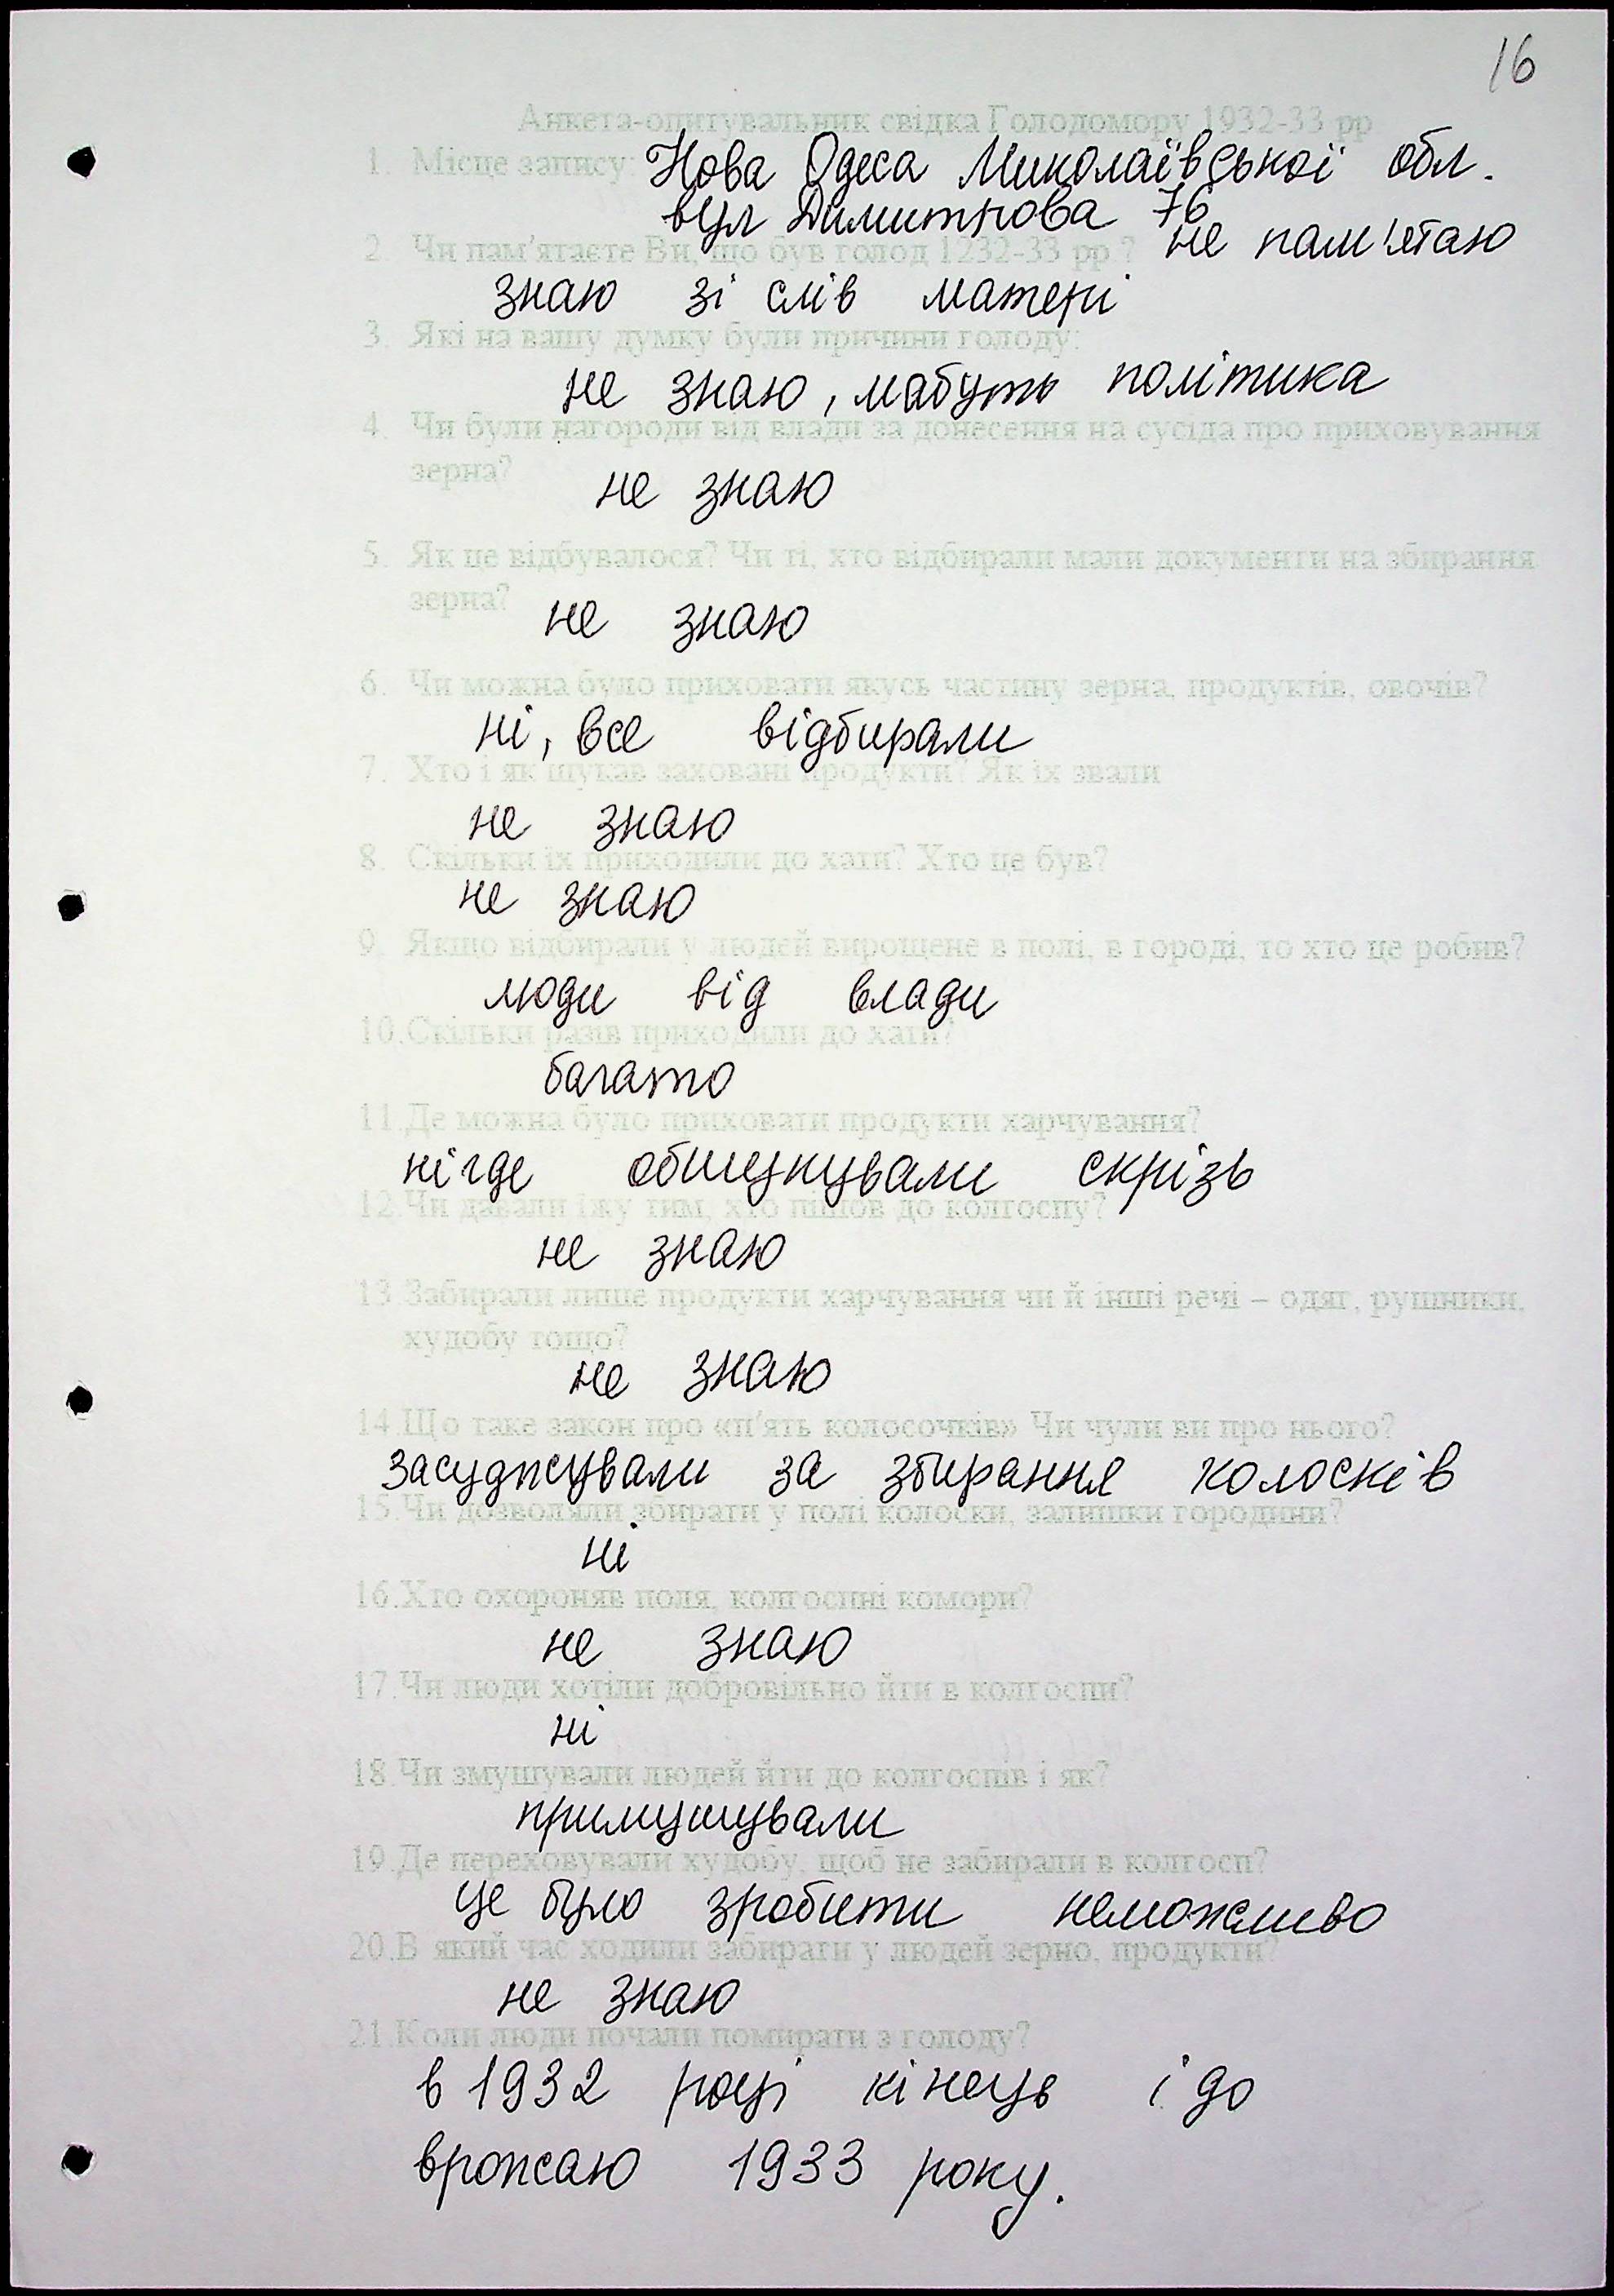 16
Анкета-опитувальник свідка Голодомору 1932-33 рр
1. Місце запису: Нова Одеса Миколаївської обл.
вул Димитрова 76
2. Чи пам'ятаєте Ви, що був голод 1232-33 рр ? не пам'ятаю
знаю зі слів матері
3. Які на вашу думку були причини голоду:
не знаю, мабуть політика
4. Чи були нагороди від влади за донесення на сусіда про приховування
зерна? не знаю
5. Як це відбувалося? Чи ті, хто відбирали мали документи на збирання
зерна? не знаю
6. Чи можна було приховати якусь частину зерна, продуктів, овочів?
ні, все відбирали
7. Хто і як шукав заховані продукти? Як їх звали
не знаю
8. Скільки їх приходили до хати? Хто це був?
не знаю
9. Якщо відбирали у людей вирощене в полі, в городі, то хто це робив?
люди від влади
10.Скільки разів приходили до хати?
багато
11.Де можна було приховати продукти харчування?
нігде обшукували скрізь
12.Чи давали їжу тим, хто пішов до колгоспу?
не знаю
13.Забирали лише продукти харчування чи й інші речі – одяг, рушники,
худобу тощо? не знаю
14.Що таке закон про «п'ять колосочків» Чи чули ви про нього?
засуджували за збирання колосків
15.Чи дозволяли збирати у полі колоски, залишки городини?
ні
16.Хто охороняв поля, колгоспні комори?
не знаю
17.Чи люди хотіли добровільно йти в колгоспи?
ні
18.Чи змушували людей йти до колгоспів і як?
примушували
19.Де переховували худобу, щоб не забирали в колгосп?
це було зробити неможливо
20.В який час ходили забирати у людей зерно, продукти?
не знаю
21.Коли люди почали помирати з голоду?
в 1932 році кінець і до
врожаю 1933 року.